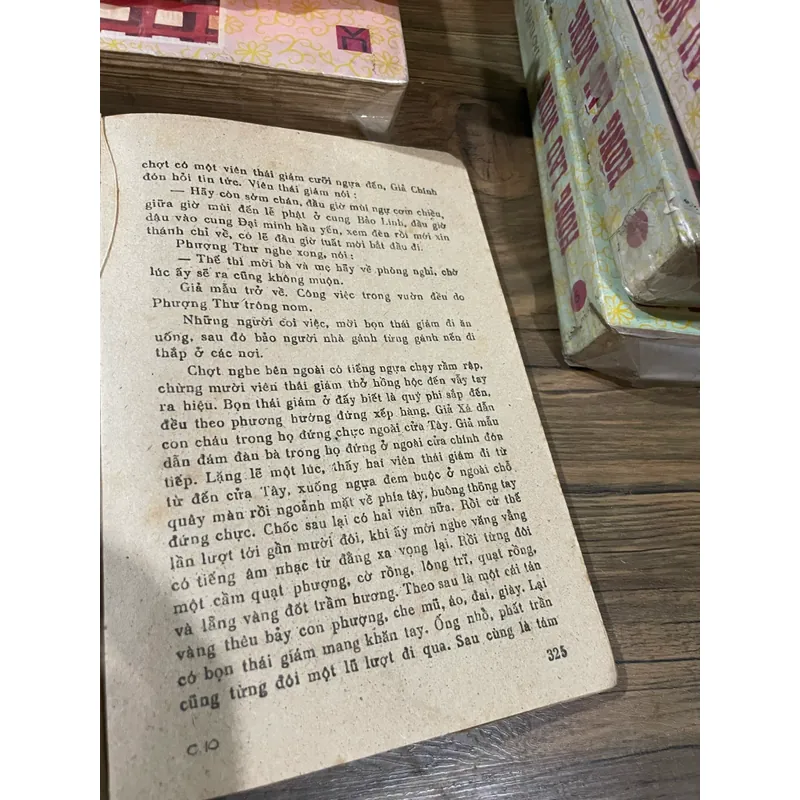 chợt có một viên thái giám cưỡi ngựa đến, Giả Chính
đón hỏi tin tức. Viên thái giám nói :
— Hãy còn sớm chán, đầu giờ mùi ngự cơm chiều,
giữa giờ mùi đến lễ phật ở cung Bảo Linh, đầu giờ
dậu vào cung Đại minh hầu yến, xem đèn rồi mới xin
thánh chỉ về, có lẽ đầu giờ tuất mới bắt đầu đi.
Phượng Thư nghe xong, nói :
— Thế thì mời bà và mẹ hãy về phòng nghỉ, chờ
lúc ấy sẽ ra cũng không muộn.
Giả mẫu trở về. Công việc trong vườn đều do
Phượng Thư trông nom.
Những người coi việc, mời bọn thái giám đi ăn
uống, sau đó bảo người nhà gánh từng gánh nến đi
thắp ở các nơi.
Chợt nghe bên ngoài có tiếng ngựa chạy rầm rập,
chừng mười viên thái giám thở hồng hộc đến vẫy tay
ra hiệu. Bọn thái giám ở đấy biết là quý phi sắp đến,
đều theo phương hướng đứng xếp hàng. Giả Xá dẫn
con cháu trong họ đứng chực ngoài cửa Tây. Giả mẫu
dẫn đám đàn bà trong họ đứng ở ngoài cửa chính đón
tiếp. Lặng lẽ một lúc, thấy hai viên thái giám đi từ
từ đến cửa Tây, xuống ngựa đem buộc ở ngoài chỗ
quây màn rồi ngoảnh mặt về phía tây, buông thõng tay
đứng chực. Chốc sau lại có hai viên nữa. Rồi cứ thế
lần lượt tới gần mười đôi, khi ấy mới nghe văng vẳng
có tiếng âm nhạc từ đằng xa vọng lại. Rồi từng đôi
một cầm quạt phượng, cờ rồng, lông trĩ, quạt rồng,
và lẵng vàng đốt trầm hương. Theo sau là một cái tán
vàng thêu bảy con phượng, che mũ, áo, đai, giày. Lại
có bọn thái giám mang khăn tay. Ống nhổ, phất trần
cũng từng đôi một lũ lượt đi qua. Sau cùng là tám
325
C.10
HỒNG LÂU MỘNG
6